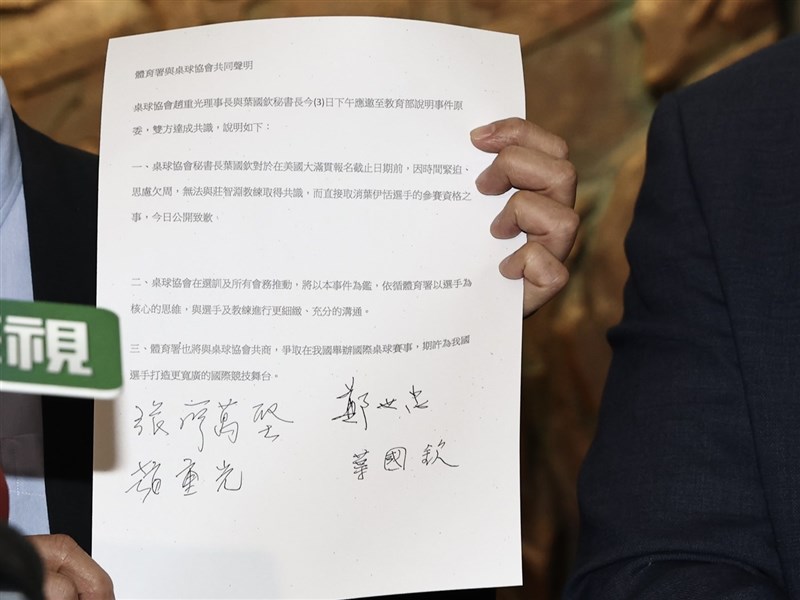 體育署與桌球協會共同聲明
桌球協會趙重光理事長與葉國欽秘書長今(3)日下午應邀至教育部說明事件原
委，雙方達成共識，說明如下：
一、桌球協會秘書長葉國欽對於在美國大滿貫報名截止日期前，因時間緊迫、
思慮欠周，無法與莊智淵教練取得共識，而直接取消葉伊恬選手的參賽資格之
事，今日公開致歉。
二、桌球協會在選訓及所有會務推動，將以本事件為鑑，依循體育署以選手為
核心的思維，與選手及教練進行更細緻、充分的溝通。
三、體育署也將與桌球協會共商，爭取在我國舉辦國際桌球賽事，期許為我國
選手打造更寬廣的國際競技舞台。
張廖萬堅 鄭世忠
趙重光 葉國欽
視